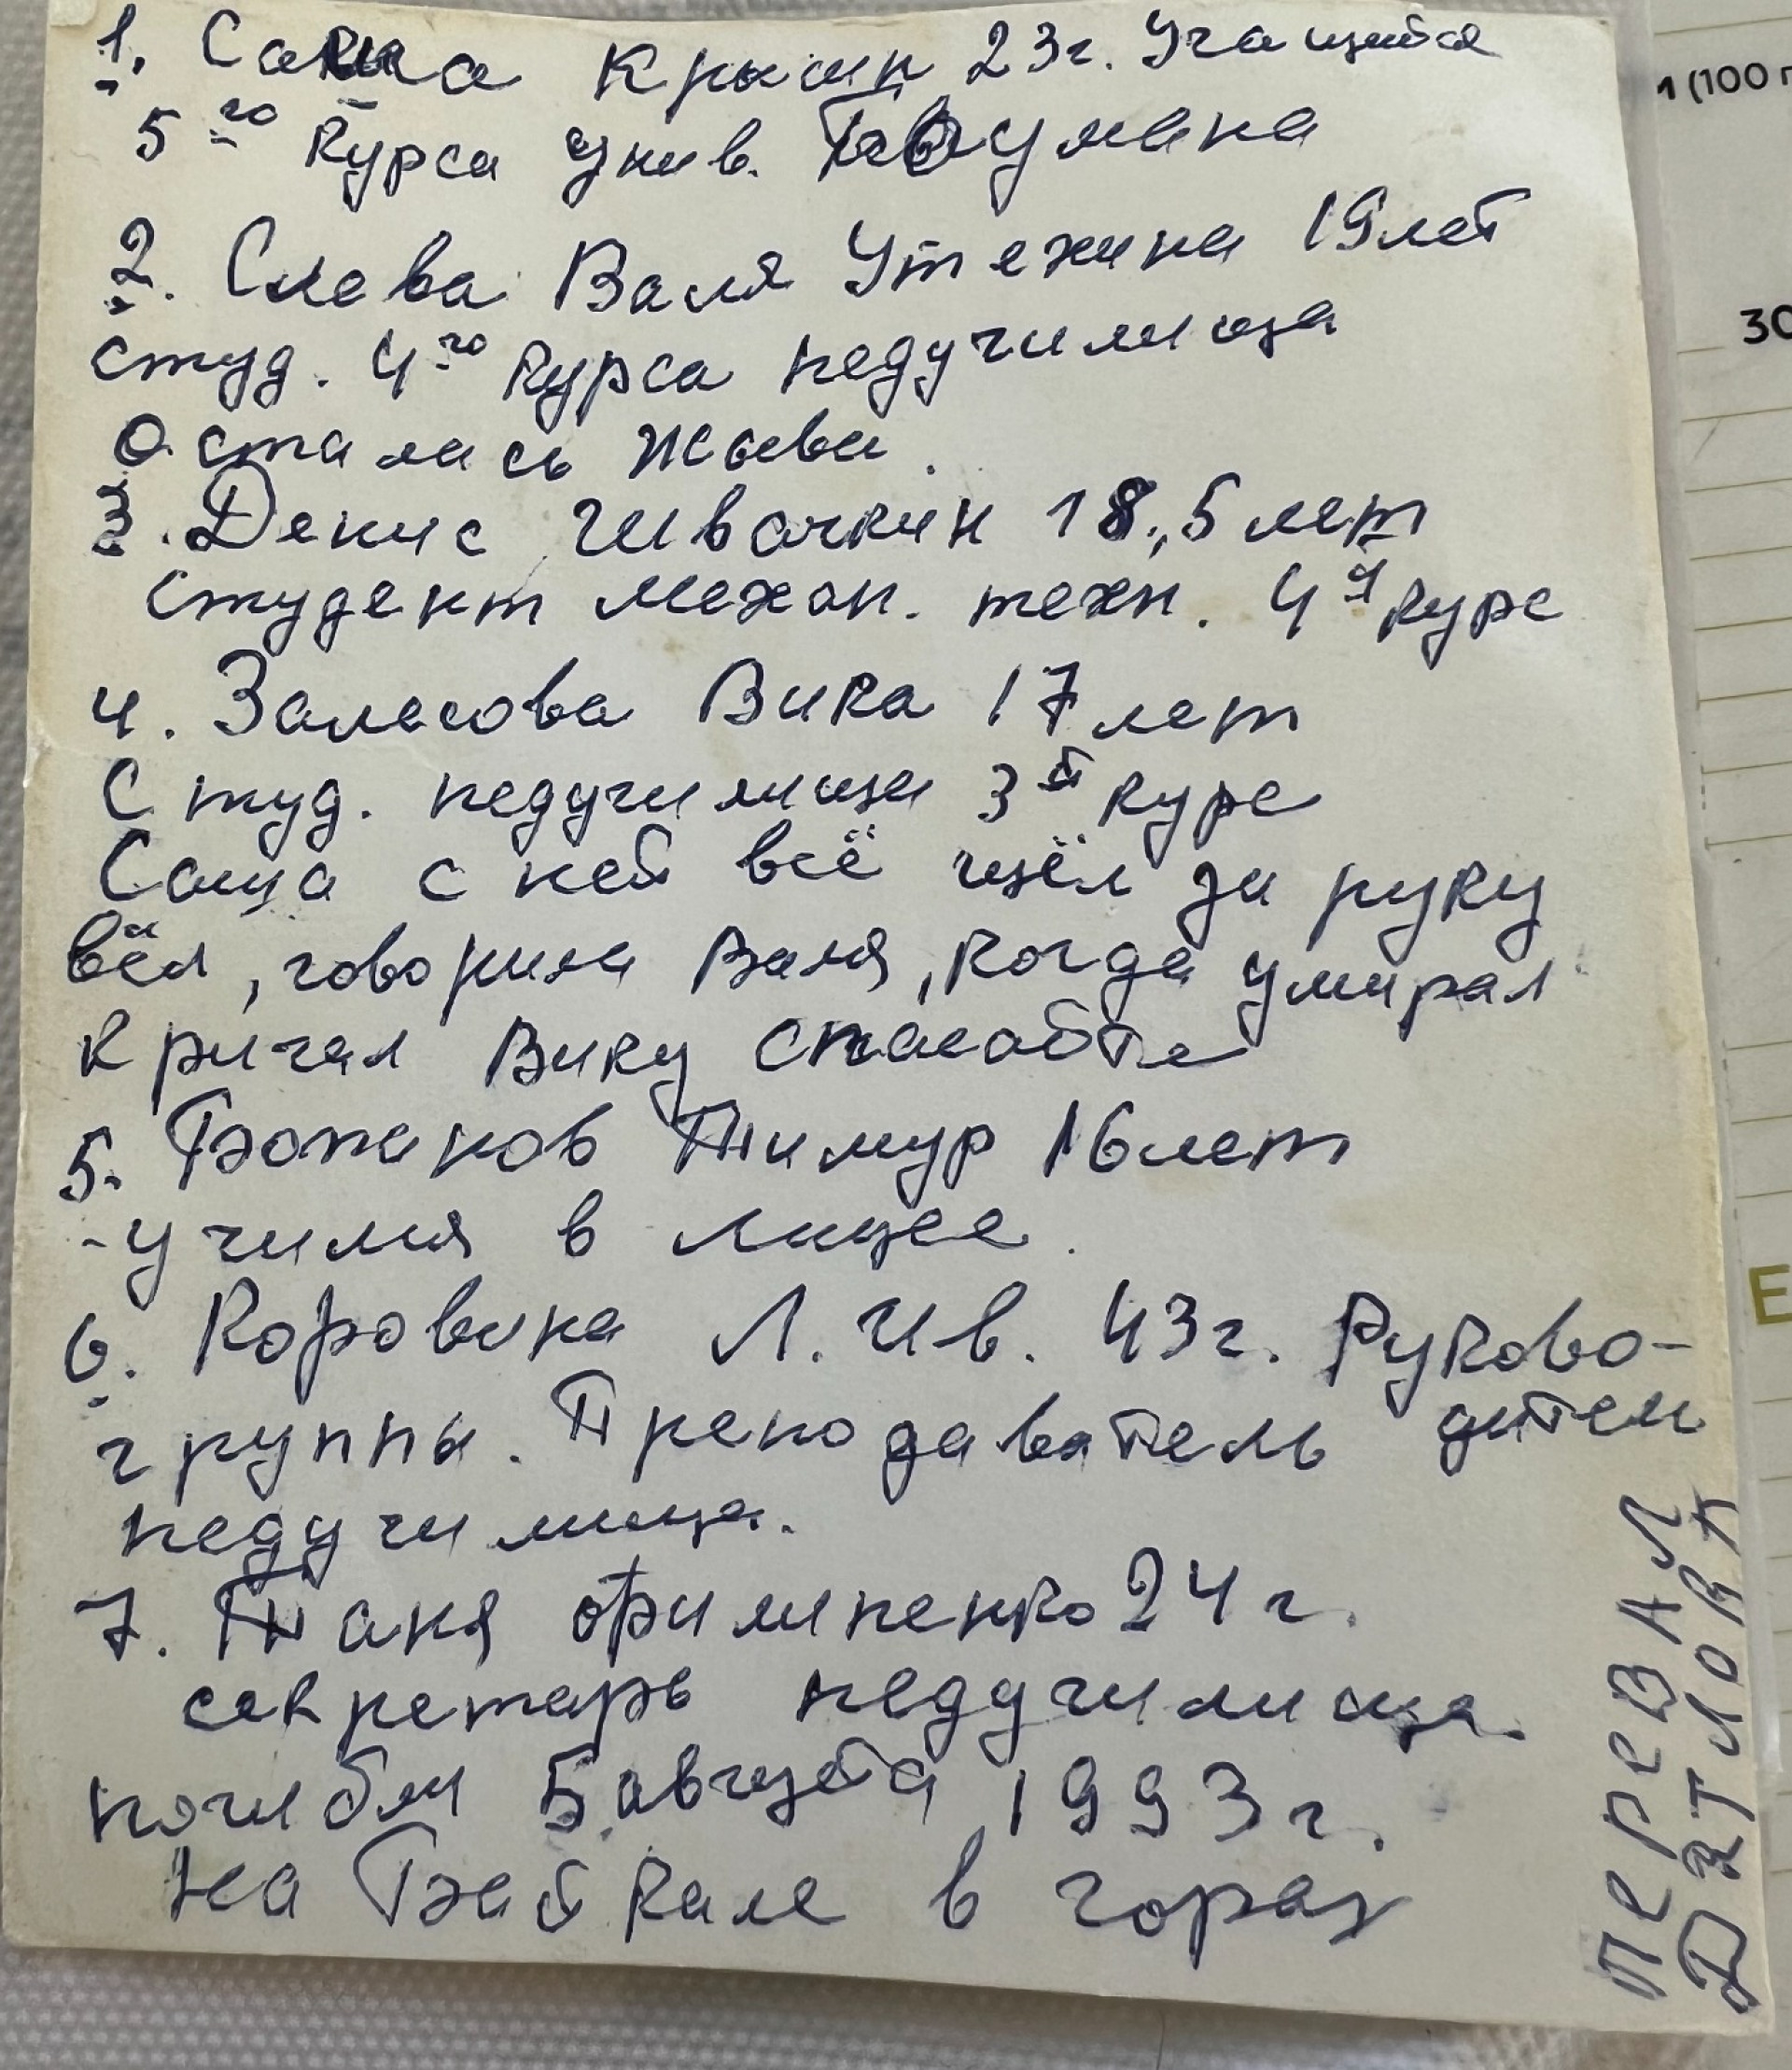 1. Саша Крысин 23г. Учащийся
5го курса унив. Баумана
2. Слева Валя Утехина 19 лет
студ. 4го курса педучилища
Осталась жива.
3. Денис Швачкин 18,5 лет
Студент механ. техн. 4й курс
4. Залесова Вика 17 лет
Студ. педучилища 3й курс
Саша с ней всё шёл за руку
вёл, говорила Валя, когда умирал
кричал Вику спасайте
5. Бапанов Тимур 16 лет
-учился в лицее.
6. Коровина Л. Ив. 43г. Руково-
дител
группы. Преподаватель
педучилища.
7. Таня Филипенко 24 г.
секретарь педучилища.
погибли 5 августа 1993 г.
На Байкале в горах
ПЕРЕВАЛ
ДЯТЛОВА
1 (100 г
30
E